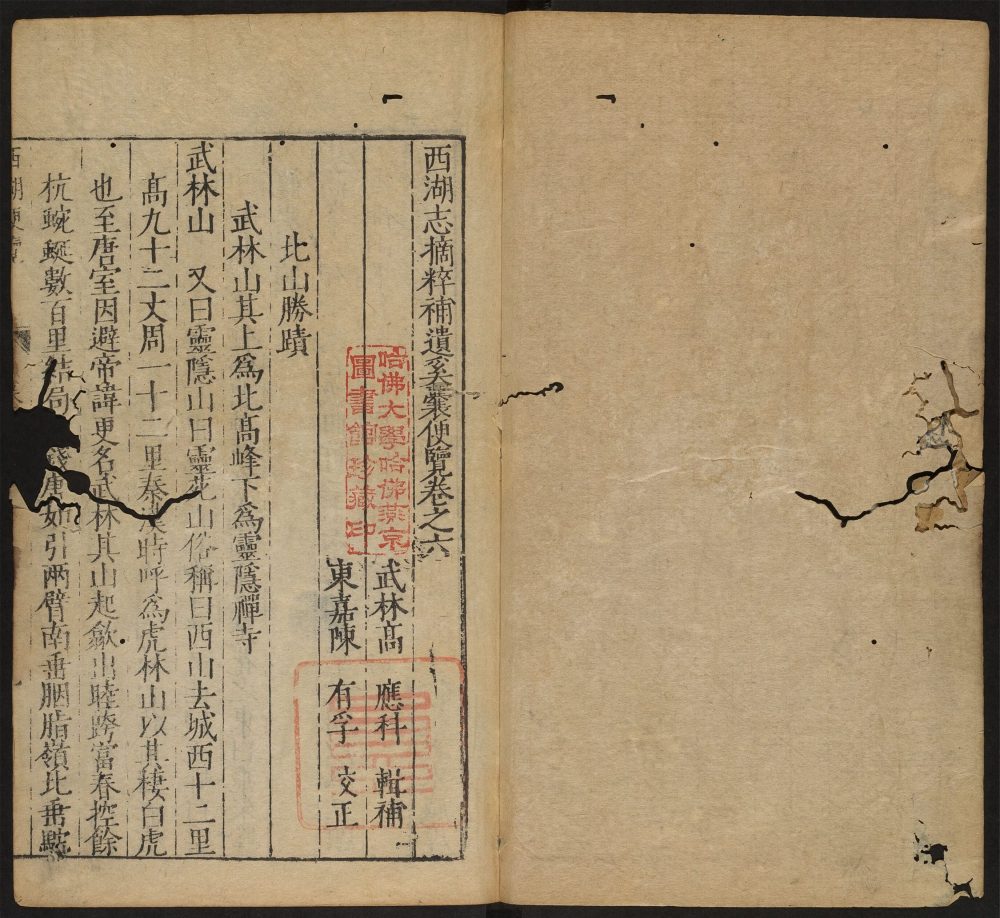 西湖志摘粹補遺奚囊便覽卷之六
武林高 應科 輯補
東嘉陳 有孚 校正
北山勝蹟
武林山其上爲北高峰下爲靈隱禪寺
武林山 又曰靈隱山曰靈苑山俗稱曰西山去城西十二里
高九十二丈周一十二里秦漢時呼爲虎林山以其棲白虎
也至唐室因避帝諱更名武林其山起歙出睦跨富春控餘
杭蜿蜒數百里結局錢唐如引兩臂南垂胭脂嶺北垂駝
哈佛大學哈佛燕京
圖書館珍藏印